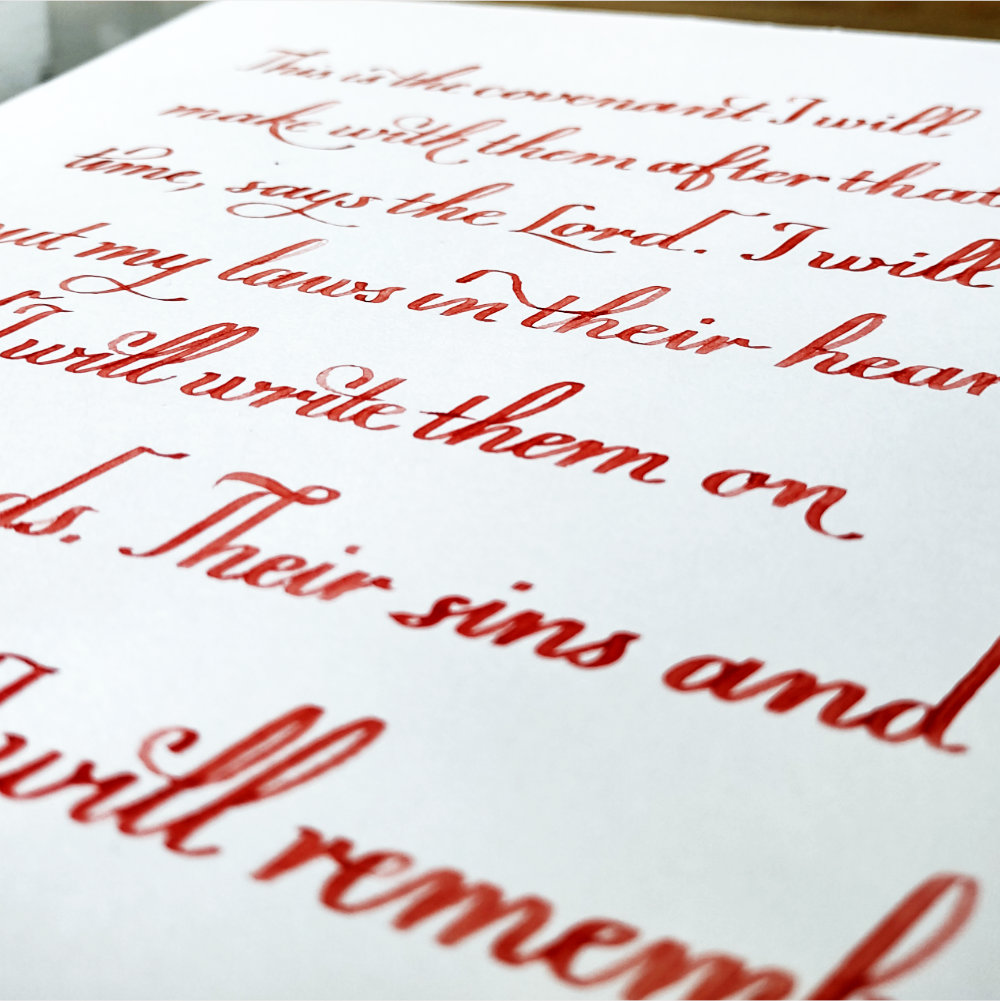 This is the covenant I will
make with them after that
time, says the Lord. I will
put my laws in their hear
I will write them on
ds. Their sins and
I will rememb